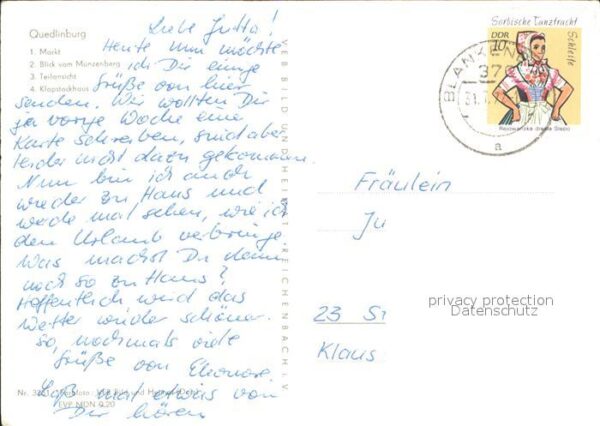 Quedlinburg
1. Markt
2. Blick vom Münzenberg
3. Teilansicht
4. Klopstockhaus
Liebe Jutta!
Heute nun möchte
ich Dir einige
Grüße von hier
senden. Wir wollten Dir
ja vorige Woche eine
Karte schreiben, sind aber
leider nicht dazu gekommen.
Nun bin ich auch
wieder zu Haus und
werde mal sehen, wie ich
den Urlaub verbringe.
Was machst Du denn
noch so zu Hause?
Hoffentlich wird das
Wetter wieder schöner.
So, nochmals viele
Grüße von Eleonore
Laß mal etwas von
Dir hören
VEB BILD UND HEIMAT REICHENBACH I. V.
Sorbische Tanztracht
DDR
10
Schleife
BLANKENB
372
31.
a
Fräulein
Ju
23 St
Klaus
privacy protection
Datenschutz
EVP MDN 0,20